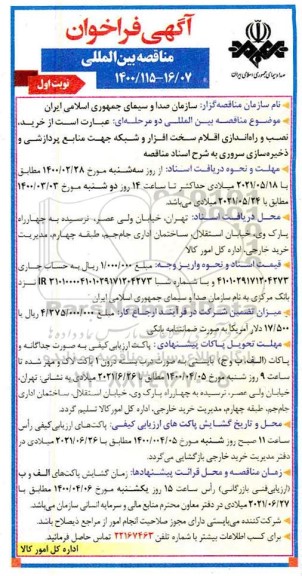 آگهی فراخوان
مناقصه بین المللی
۱۴۰۰/۱۱۵-۱۶/۰۷
نوبت اول
صدا و سیمای جمهوری اسلامی ایران
نام سازمان مناقصه‌گزار: سازمان صدا و سیمای جمهوری اسلامی ایران
موضوع مناقصه بین المللی دو مرحله‌ای: عبارت است از خرید،
نصب و راه‌اندازی اقلام سخت افزار و شبکه جهت منابع پردازشی و
ذخیره‌سازی سروری به شرح اسناد مناقصه
مهلت و نحوه دریافت اسناد: از روز سه‌شنبه مورخ ۱۴۰۰/۰۲/۲۸ مطابق با
۲۰۲۱/۰۵/۱۸ میلادی حداکثر تا ساعت ۱۴ روز دو شنبه مورخ ۱۴۰۰/۰۳/۰۳
مطابق با ۲۰۲۱/۰۵/۲۴ میلادی می‌باشد.
محل دریافت اسناد: تهران، خیابان ولی عصر، نرسیده به چهارراه
پارک وی، خیابان استقلال، ساختمان اداری جام‌جم، طبقه چهارم، مدیریت
خرید خارجی، اداره کل امور کالا
قیمت اسناد و نحوه واریز وجه: مبلغ ۱/۰۰۰/۰۰۰ ریال به حساب جاری
بانک مرکزی به نام سازمان صدا و سیمای جمهوری اسلامی ایران
میزان تضمین شرکت در فرآیند ارجاع کار: مبلغ ۴/۳۷۵/۰۰۰/۰۰۰ ریال یا
۱۷/۵۰۰ دلار آمریکا به صورت ضمانتنامه بانکی
مهلت تحویل پاکات پیشنهادی: پاکت ارزیابی کیفی به صورت جداگانه و
پاکات (الف، ب و ج) بایستی به صورت دربسته درون ۱ پاکت لاک و مهر شده تا
ساعت ۹ روز شنبه مورخ ۱۴۰۰/۰۴/۰۵ مطابق با ۲۰۲۱/۶/۲۶ میلادی به نشانی: تهران،
خیابان ولی عصر، نرسیده به چهارراه پارک وی، خیابان استقلال، ساختمان اداری
جام‌جم، طبقه چهارم، مدیریت خرید خارجی، اداره کل امور کالا تسلیم گردد.
محل و تاریخ گشایش پاکت های ارزیابی کیفی: پاکت‌های ارزیابی کیفی رأس
ساعت ۱۱ صبح روز شنبه مورخ ۱۴۰۰/۰۴/۰۵ مطابق با ۲۰۲۱/۰۶/۲۶ میلادی در
دفتر مدیریت خرید خارجی بازگشایی می‌گردد.
زمان مناقصه و محل قرائت پیشنهادها: زمان گشایش پاکت‌های الف و ب
(ارزیابی فنی بازرگانی) رأس ساعت ۱۵ روز یکشنبه مورخ ۱۴۰۰/۰۴/۰۶ مطابق با
۲۰۲۱/۰۶/۲۷ میلادی در دفتر معاون محترم منابع مالی و سرمایه انسانی سازمان می‌باشد.
شرکت‌کننده می‌بایستی دارای مجوز صلاحیت انجام امور از مراجع ذیصلاح باشد.
برای کسب اطلاعات بیشتر با شماره تلفن ۲۲۱۶۷۴۶۳ تماس حاصل فرمائید.
اداره کل امور کالا